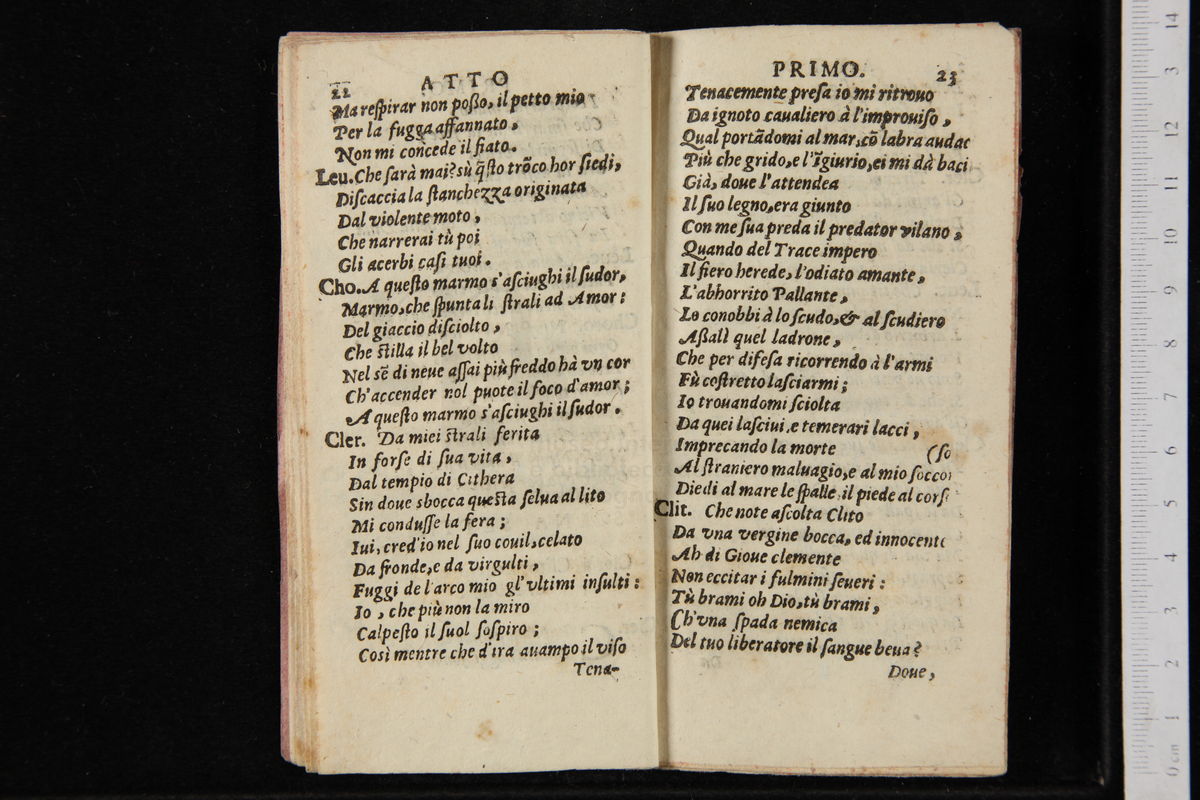 22 ATTO
Ma respirar non poßo, il petto mio
Per la fugga affannato,
Non mi concede il fiato.
Leu. Che sarà mai? sù q̃sto trõco hor siedi,
Discaccia la stanchezza originata
Dal violente moto,
Che narrerai tù poi
Gli acerbi casi tuoi.
Cho. A questo marmo s'asciughi il sudor,
Marmo, che spunta li strali ad Amor:
Del giaccio disciolto,
Che stilla il bel volto
Nel sẽ di neue assai più freddo hà vn cor
Ch'accender nol puote il foco d'amor;
A questo marmo s'asciughi il sudor.
Cler. Da miei strali ferita
In forse di sua vita,
Dal tempio di Cithera
Sin doue sbocca questa selua al lito
Mi condusse la fera;
Iui, cred'io nel suo couil, celato
Da fronde, e da virgulti,
Fuggi de l'arco mio gl'vltimi insulti:
Io, che più non la miro
Calpesto il suol sospiro;
Così mentre che d'ira auampo il viso
Tena-
PRIMO. 23
Tenacemente presa io mi ritrouo
Da ignoto caualiero à l'improuiso,
Qual portãdomi al mar, cõ labra audac
Più che grido, e l'ĩgiurio, ei mi dà baci
Già, doue l'attendea
Il suo legno, era giunto
Con me sua preda il predator vilano,
Quando del Trace impero
Il fiero herede, l'odiato amante,
L'abhorrito Pallante,
Lo conobbi à lo scudo, & al scudiero
Aßalì quel ladrone,
Che per difesa ricorrendo à l'armi
Fù costretto lasciarmi;
Io trouandomi sciolta
Da quei lasciui, e temerari lacci,
Imprecando la morte (so
Al straniero maluagio, e al mio soccor
Diedi al mare le spalle, il piede al cors
Clit. Che note ascolta Clito
Da vna vergine bocca, ed innocente
Ah di Gioue clemente
Non eccitar i fulmini seueri:
Tù brami oh Dio, tù brami,
Ch'vna spada nemica
Del tuo liberatore il sangue beua?
Doue,
14
3
12
11
10
9
8
7
6
5
4
3
2
1
0 cm